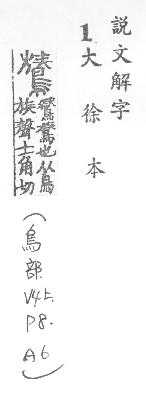 説文解字
1. 大徐本
鷟
鸑鷟也从鳥
族聲士角切
(鳥部
V4上.
P8.
A6)